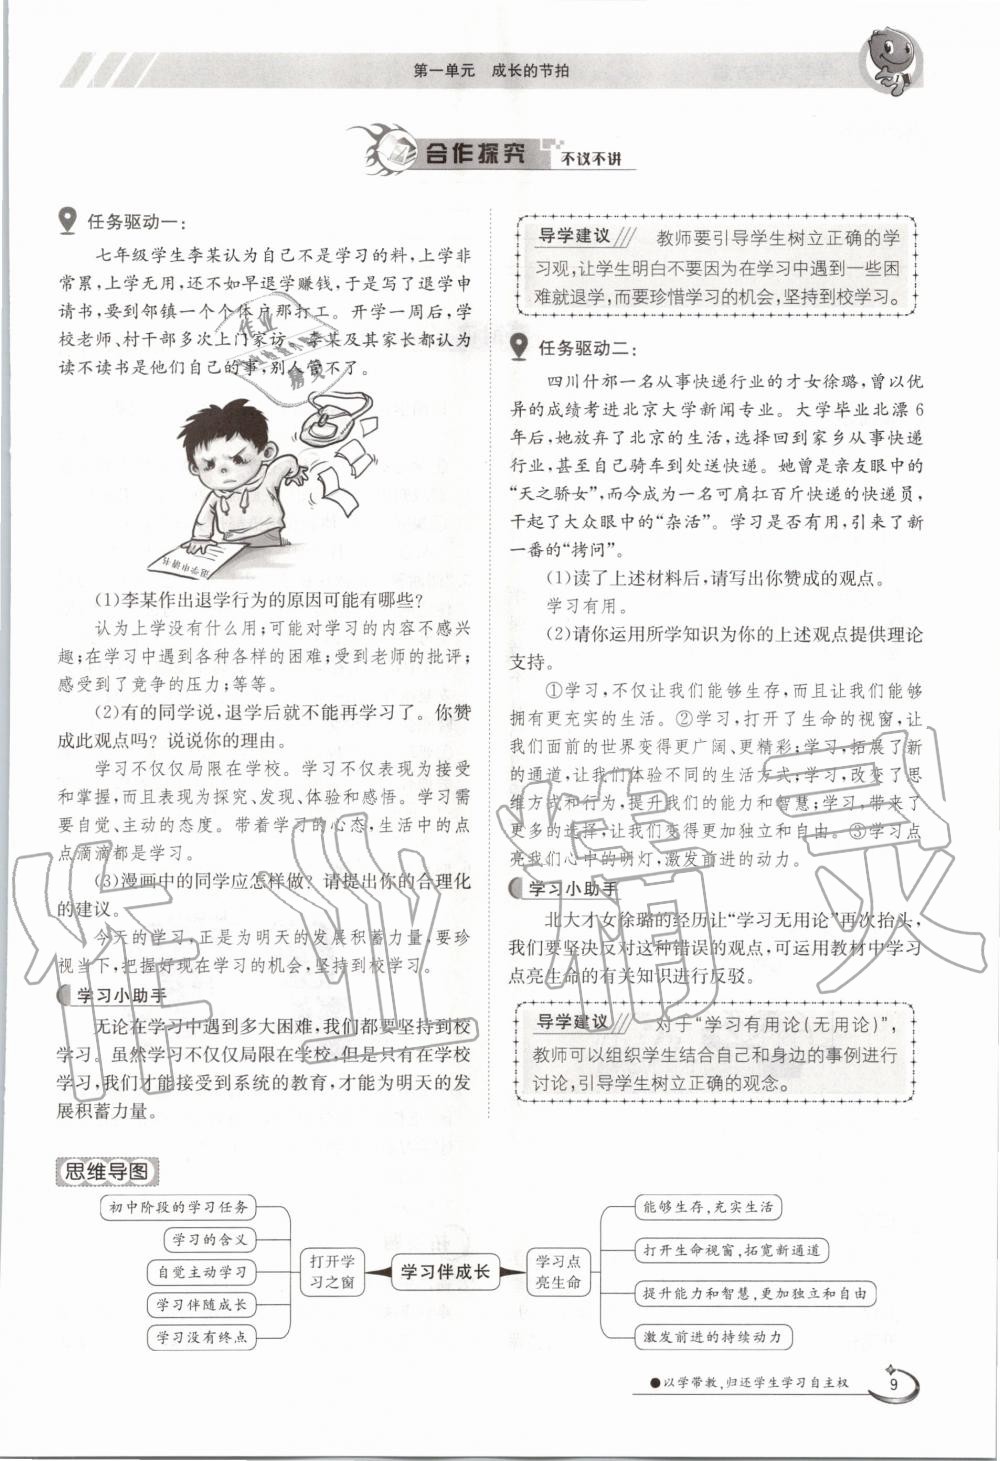 第一单元　成长的节拍
合作探究 不议不讲
任务驱动一：
七年级学生李某认为自己不是学习的料,上学非
常累,上学无用,还不如早退学赚钱,于是写了退学申
请书,要到邻镇一个个体户那打工。开学一周后,学
校老师、村干部多次上门家访,李某及其家长都认为
读不读书是他们自己的事,别人管不了。
退学申请书
(1)李某作出退学行为的原因可能有哪些?
认为上学没有什么用;可能对学习的内容不感兴
趣;在学习中遇到各种各样的困难;受到老师的批评;
感受到了竞争的压力;等等。
(2)有的同学说,退学后就不能再学习了。你赞
成此观点吗？说说你的理由。
学习不仅仅局限在学校。学习不仅表现为接受
和掌握,而且表现为探究、发现、体验和感悟。学习需
要自觉、主动的态度。带着学习的心态,生活中的点
点滴滴都是学习。
(3)漫画中的同学应怎样做？请提出你的合理化
的建议。
今天的学习,正是为明天的发展积蓄力量,要珍
视当下,把握好现在学习的机会,坚持到校学习。
学习小助手
无论在学习中遇到多大困难,我们都要坚持到校
学习。虽然学习不仅仅局限在学校,但是只有在学校
学习,我们才能接受到系统的教育,才能为明天的发
展积蓄力量。
导学建议 教师要引导学生树立正确的学
习观,让学生明白不要因为在学习中遇到一些困
难就退学,而要珍惜学习的机会,坚持到校学习。
任务驱动二：
四川什邡一名从事快递行业的才女徐璐,曾以优
异的成绩考进北京大学新闻专业。大学毕业北漂 6
年后,她放弃了北京的生活,选择回到家乡从事快递
行业,甚至自己骑车到处送快递。她曾是亲友眼中的
“天之骄女”,而今成为一名可肩扛百斤快递的快递员,
干起了大众眼中的“杂活”。学习是否有用,引来了新
一番的“拷问”。
(1)读了上述材料后,请写出你赞成的观点。
学习有用。
(2)请你运用所学知识为你的上述观点提供理论
支持。
①学习,不仅让我们能够生存,而且让我们能够
拥有更充实的生活。②学习,打开了生命的视窗,让
我们面前的世界变得更广阔、更精彩;学习,拓展了新
的通道,让我们体验不同的生活方式;学习,改变了思
维方式和行为,提升我们的能力和智慧;学习,带来了
更多的选择,让我们变得更加独立和自由。③学习点
亮我们心中的明灯,激发前进的动力。
学习小助手
北大才女徐璐的经历让“学习无用论”再次抬头,
我们要坚决反对这种错误的观点,可运用教材中学习
点亮生命的有关知识进行反驳。
导学建议 对于“学习有用论(无用论)”,
教师可以组织学生结合自己和身边的事例进行
讨论,引导学生树立正确的观念。
思维导图
初中阶段的学习任务
学习的含义
自觉主动学习
学习伴随成长
学习没有终点
打开学
习之窗
学习伴成长
学习点
亮生命
能够生存,充实生活
打开生命视窗,拓宽新通道
提升能力和智慧,更加独立和自由
激发前进的持续动力
●以学带教,归还学生学习自主权
9
作业精灵